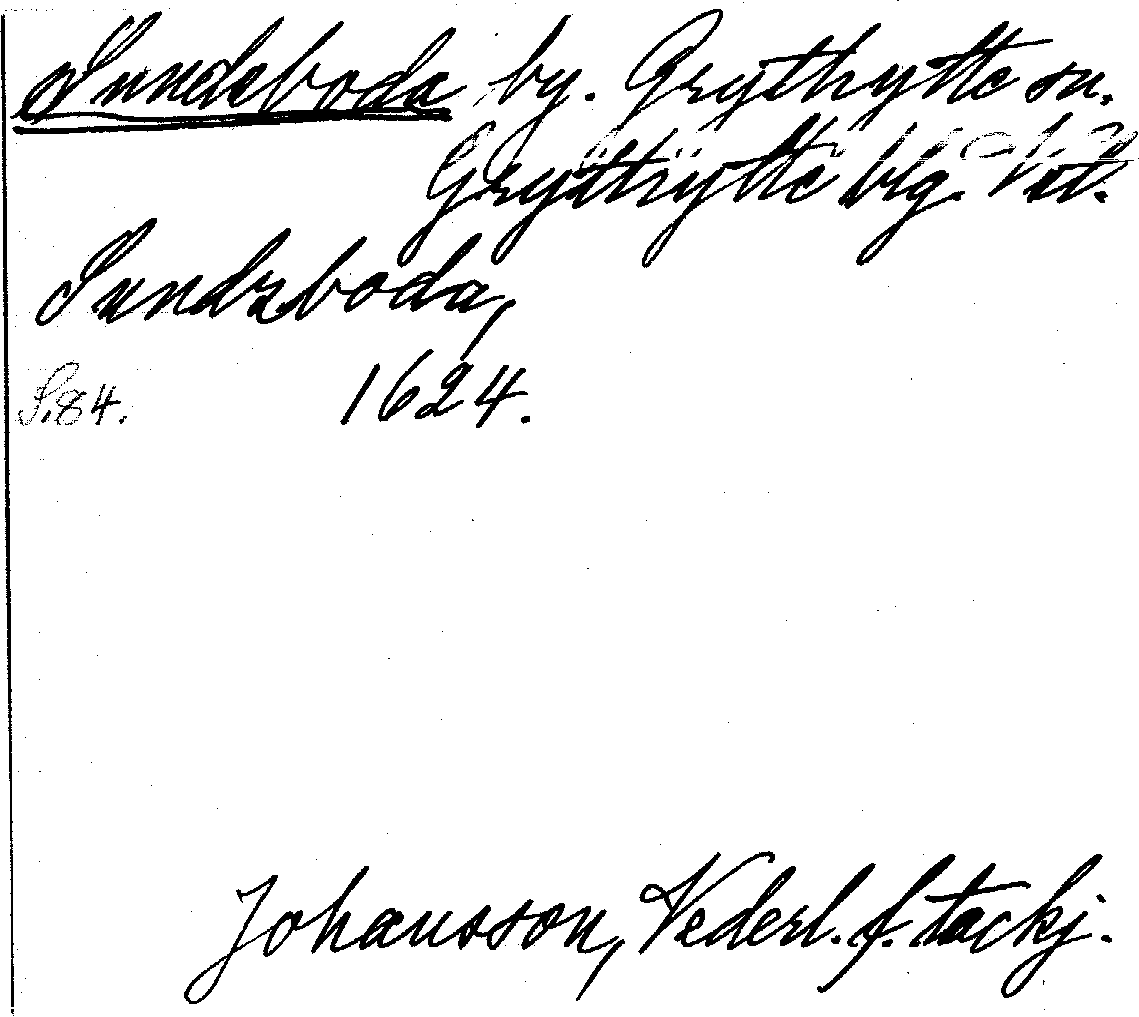 Sundsboda by. Grythytte sn.
Grythytte blg. Vstl.
Sundzboda,
S.84. 1624.
Johansson, Nederl. f. tackj.